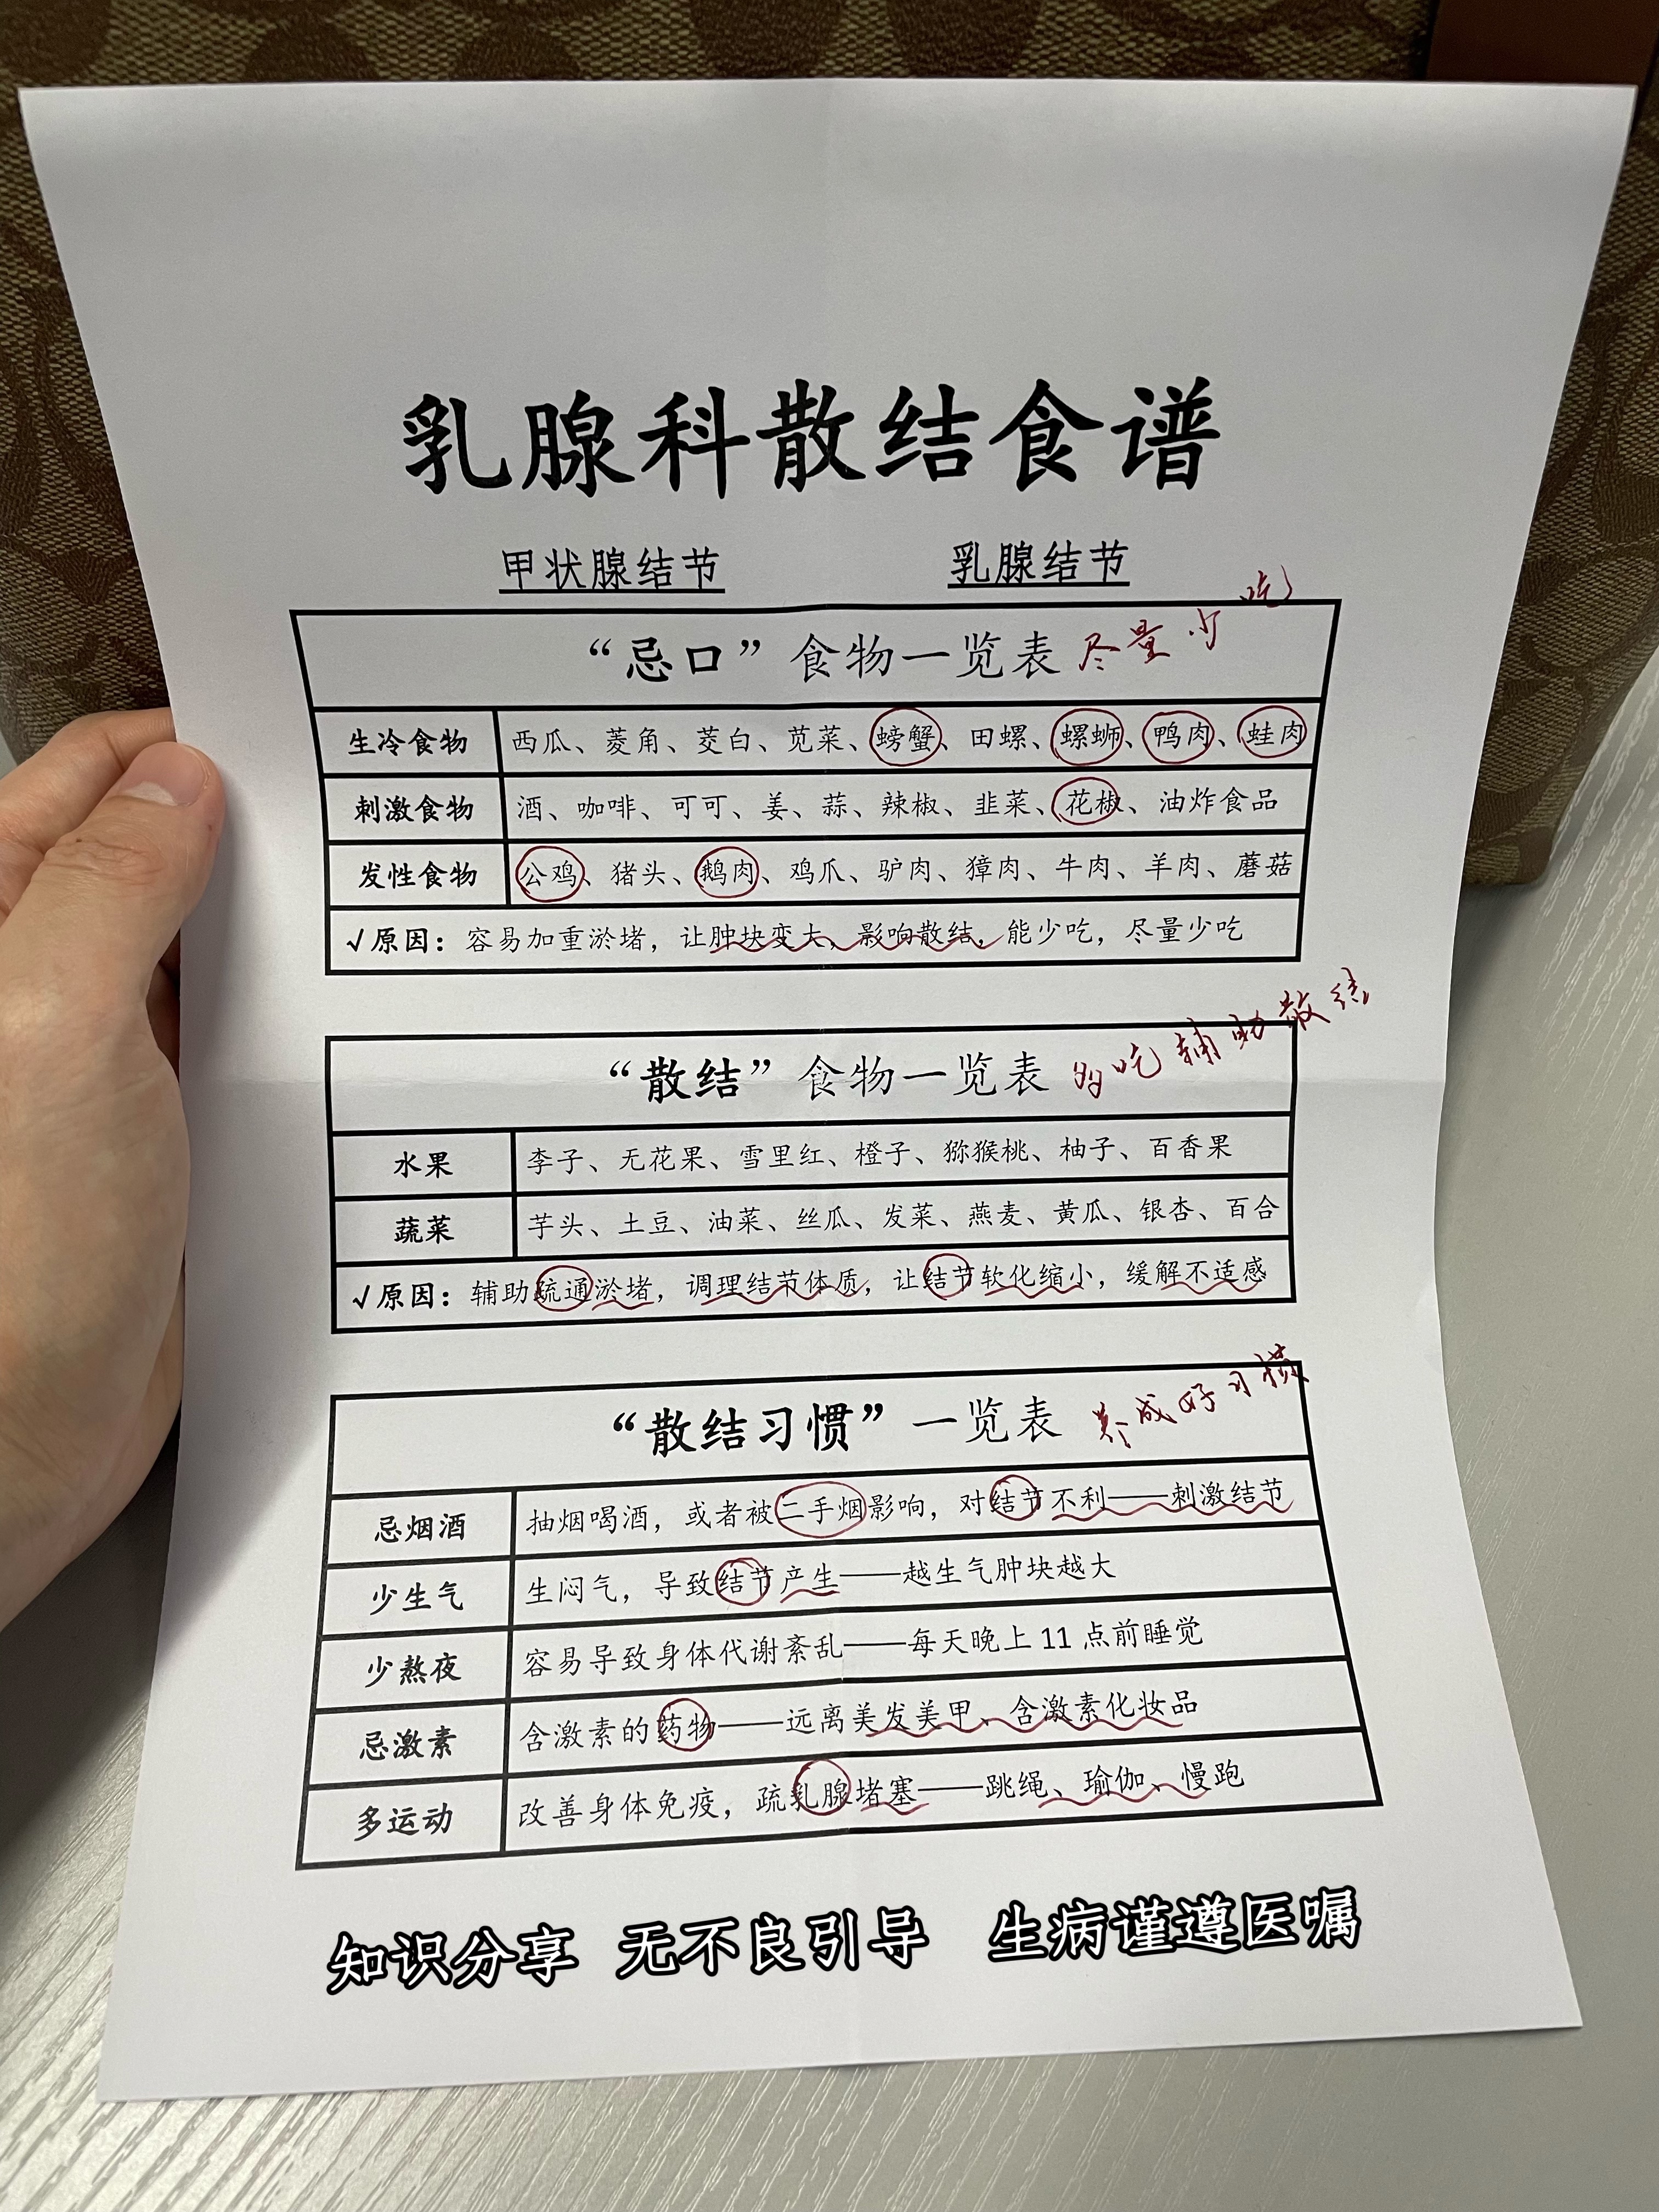 乳腺科散结食谱
甲状腺结节 乳腺结节
“忌口”食物一览表 尽量少吃
生冷食物 西瓜、菱角、茭白、苋菜、螃蟹、田螺、螺蛳、鸭肉、蛙肉
刺激食物 酒、咖啡、可可、姜、蒜、辣椒、韭菜、花椒、油炸食品
发性食物 公鸡、猪头、鹅肉、鸡爪、驴肉、獐肉、牛肉、羊肉、蘑菇
√原因：容易加重淤堵，让肿块变大，影响散结，能少吃，尽量少吃
“散结”食物一览表 多吃辅助散结
水果 李子、无花果、雪里红、橙子、猕猴桃、柚子、百香果
蔬菜 芋头、土豆、油菜、丝瓜、发菜、燕麦、黄瓜、银杏、百合
√原因：辅助疏通淤堵，调理结节体质，让结节软化缩小，缓解不适感
“散结习惯”一览表 养成好习惯
忌烟酒 抽烟喝酒，或者被二手烟影响，对结节不利——刺激结节
少生气 生闷气，导致结节产生——越生气肿块越大
少熬夜 容易导致身体代谢紊乱——每天晚上11点前睡觉
忌激素 含激素的药物——远离美发美甲、含激素化妆品
多运动 改善身体免疫，疏乳腺堵塞——跳绳、瑜伽、慢跑
知识分享 无不良引导 生病谨遵医嘱